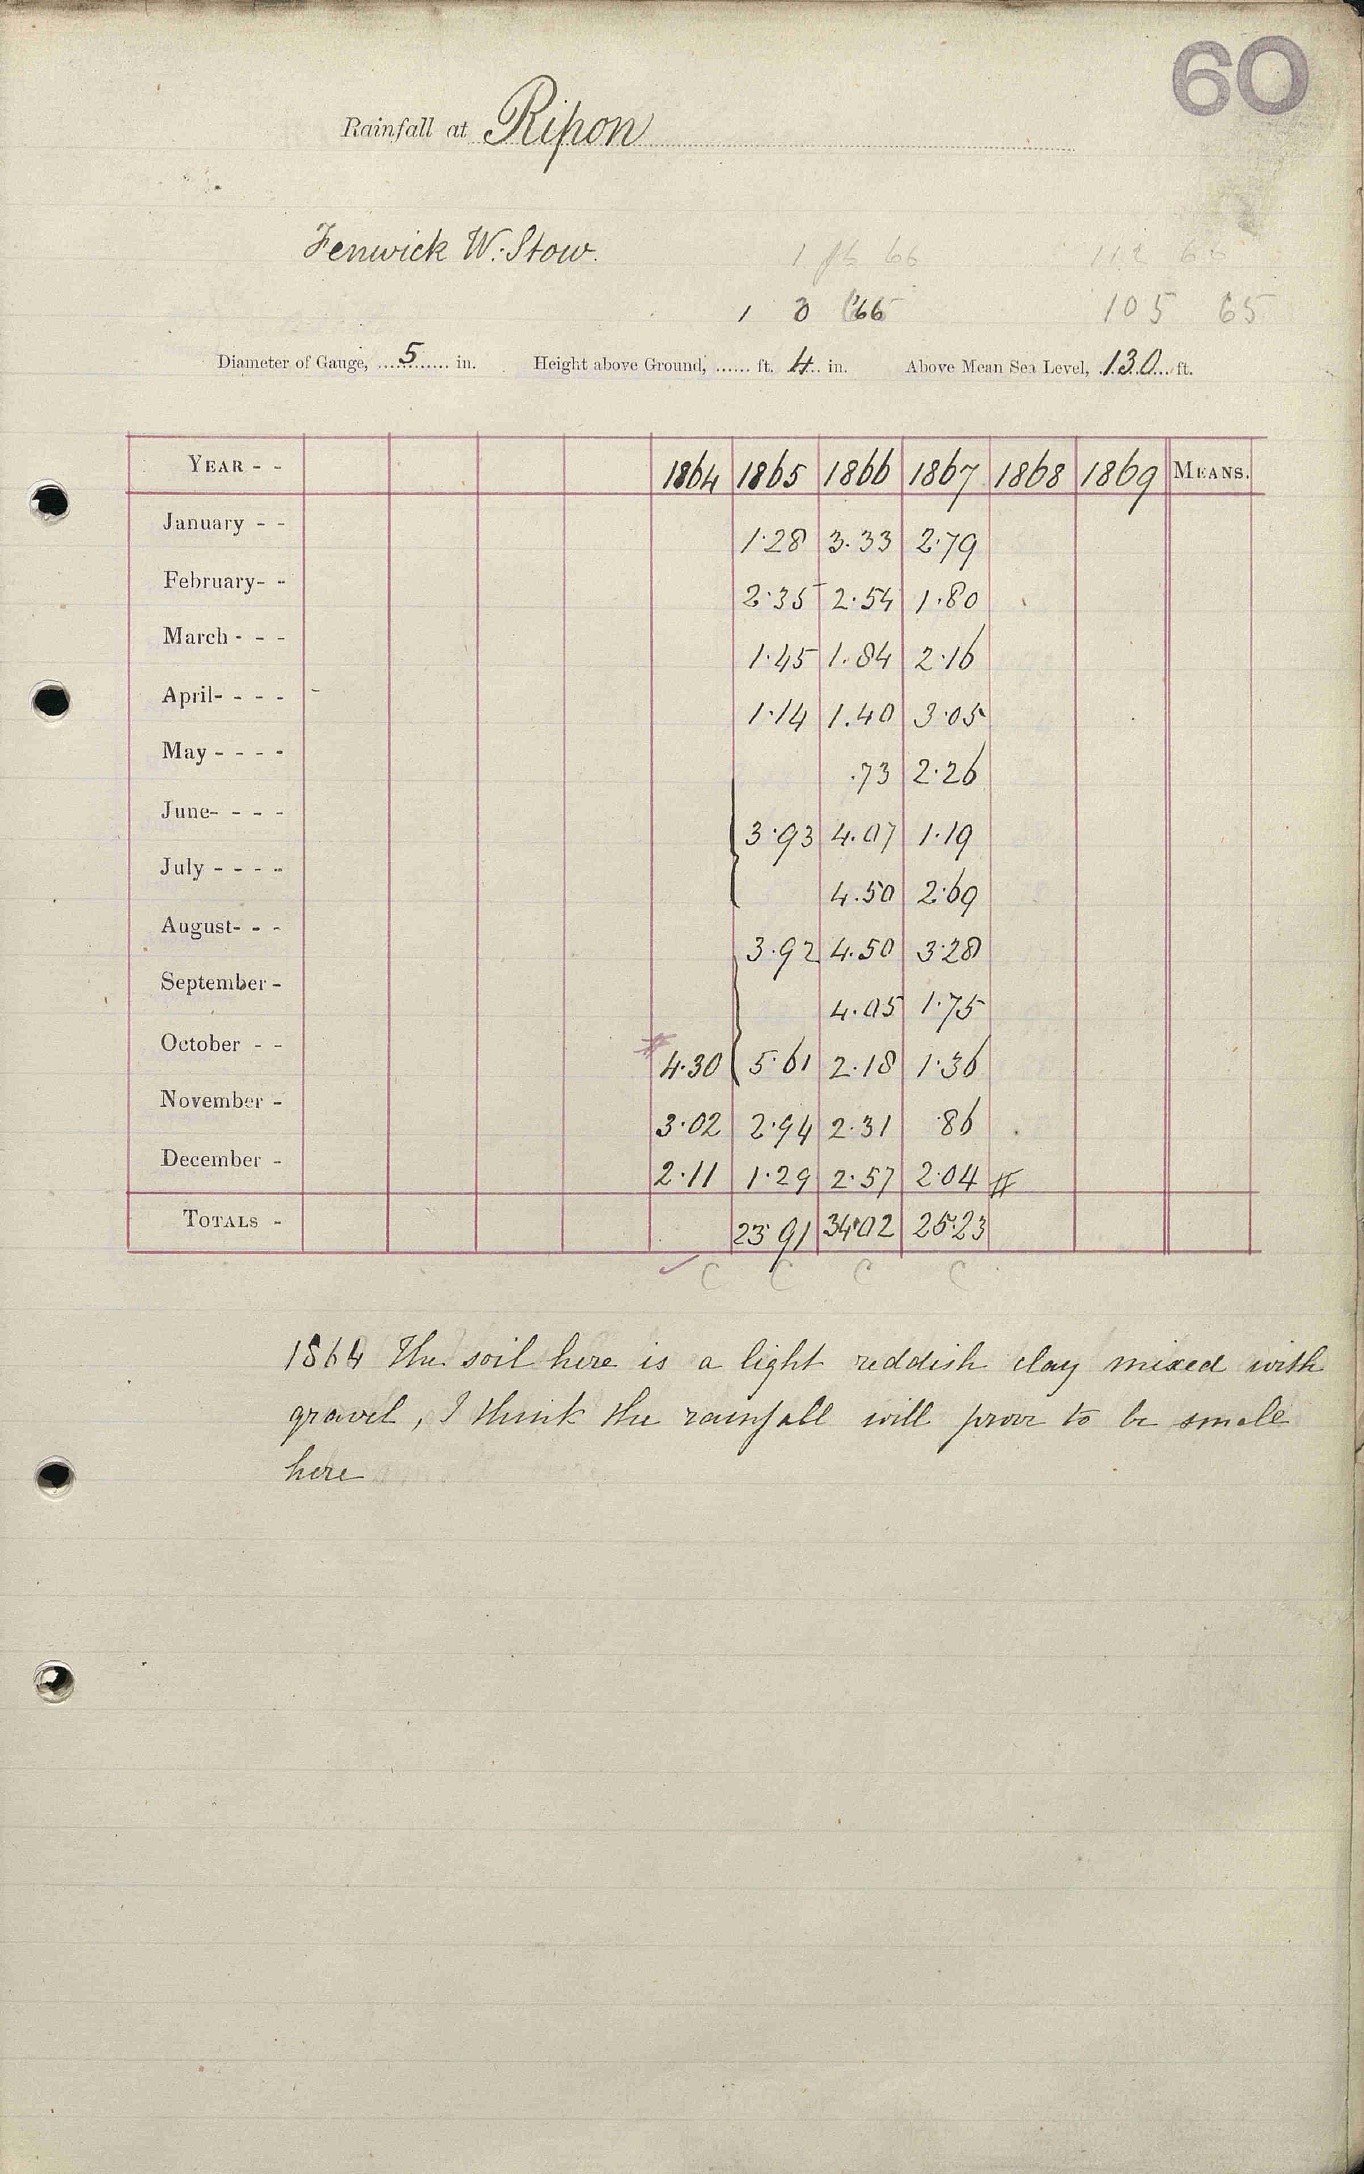 60
Rainfall at Ripon
Fenwick W. Stow. 1 66 112 66
1 0 66 105 65
Diameter of Gauge, 5 in. Height above Ground, ...... ft. 4 in. Above Mean Sea Level, 130 ft.
YEAR - - 1864 1865 1866 1867 1868 1869 MEANS.
January - - 1.28 3.33 2.79
February - - 2.35 2.54 1.80
March - - - 1.45 1.84 2.16
April - - - - 1.14 1.40 3.05
May - - - - .73 2.26
June - - - - 3.93 4.07 1.19
July - - - - 4.50 2.69
August - - - 3.92 4.50 3.28
September - 4.05 1.75
October - - 4.30 5.61 2.18 1.36
November - 3.02 2.94 2.31 .86
December - 2.11 1.29 2.57 2.04 #
TOTALS - 23.91 34.02 25.23
C C C C
1864 The soil here is a light reddish clay mixed with
gravel, I think the rainfall will prove to be small
here